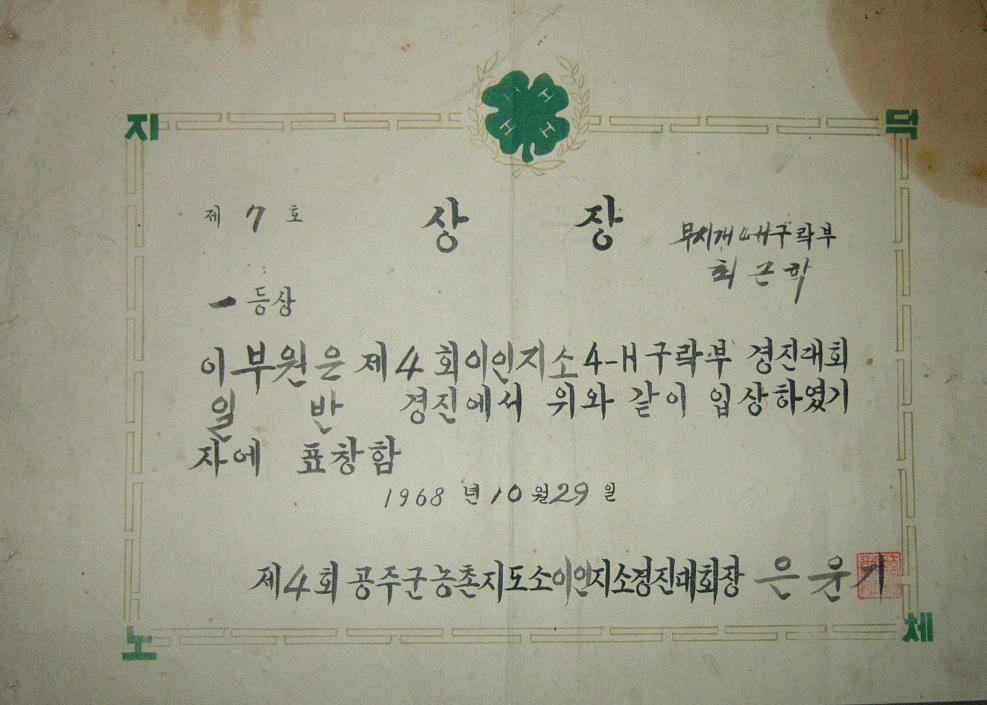 지 덕
H H H H
제 7 호
상 장
무지개 4-H구락부
최근학
一등상
이부원은 제4회이인지소4-H구락부 경진대회
일 반 경진에서 위와 같이 입상하였기
자에 표창함
1968 년 10 월 29 일
제4회 공주군농촌지도소이인지소경진대회장 은윤기
노 체